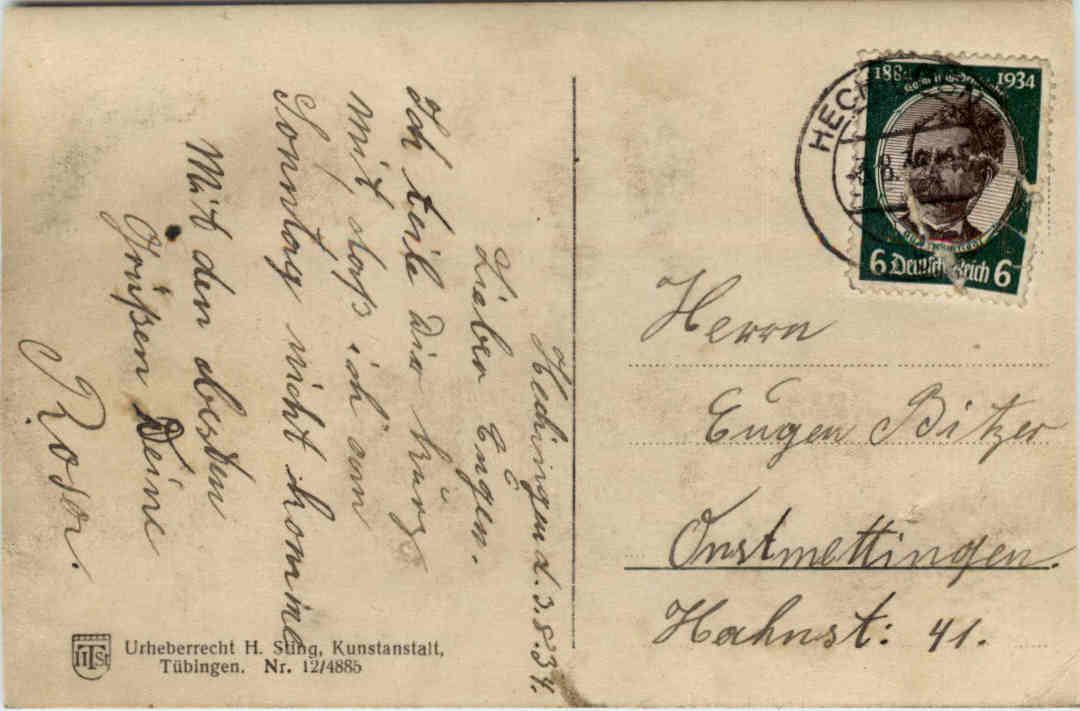 Hechingen d. 3.8.34.
Lieber Eugen.
Ich teile dir kurz
mit, daß ich am
Sonntag nicht komme
Mit den besten
Grüßen Deine
Rosa.
Urheberrecht H. Sting, Kunstanstalt,
Tübingen. Nr. 12/4885
1884 1934
6 Deutsches Reich 6
Herrn
Eugen Bitzer
Onstmettingen.
Hahnst: 41.